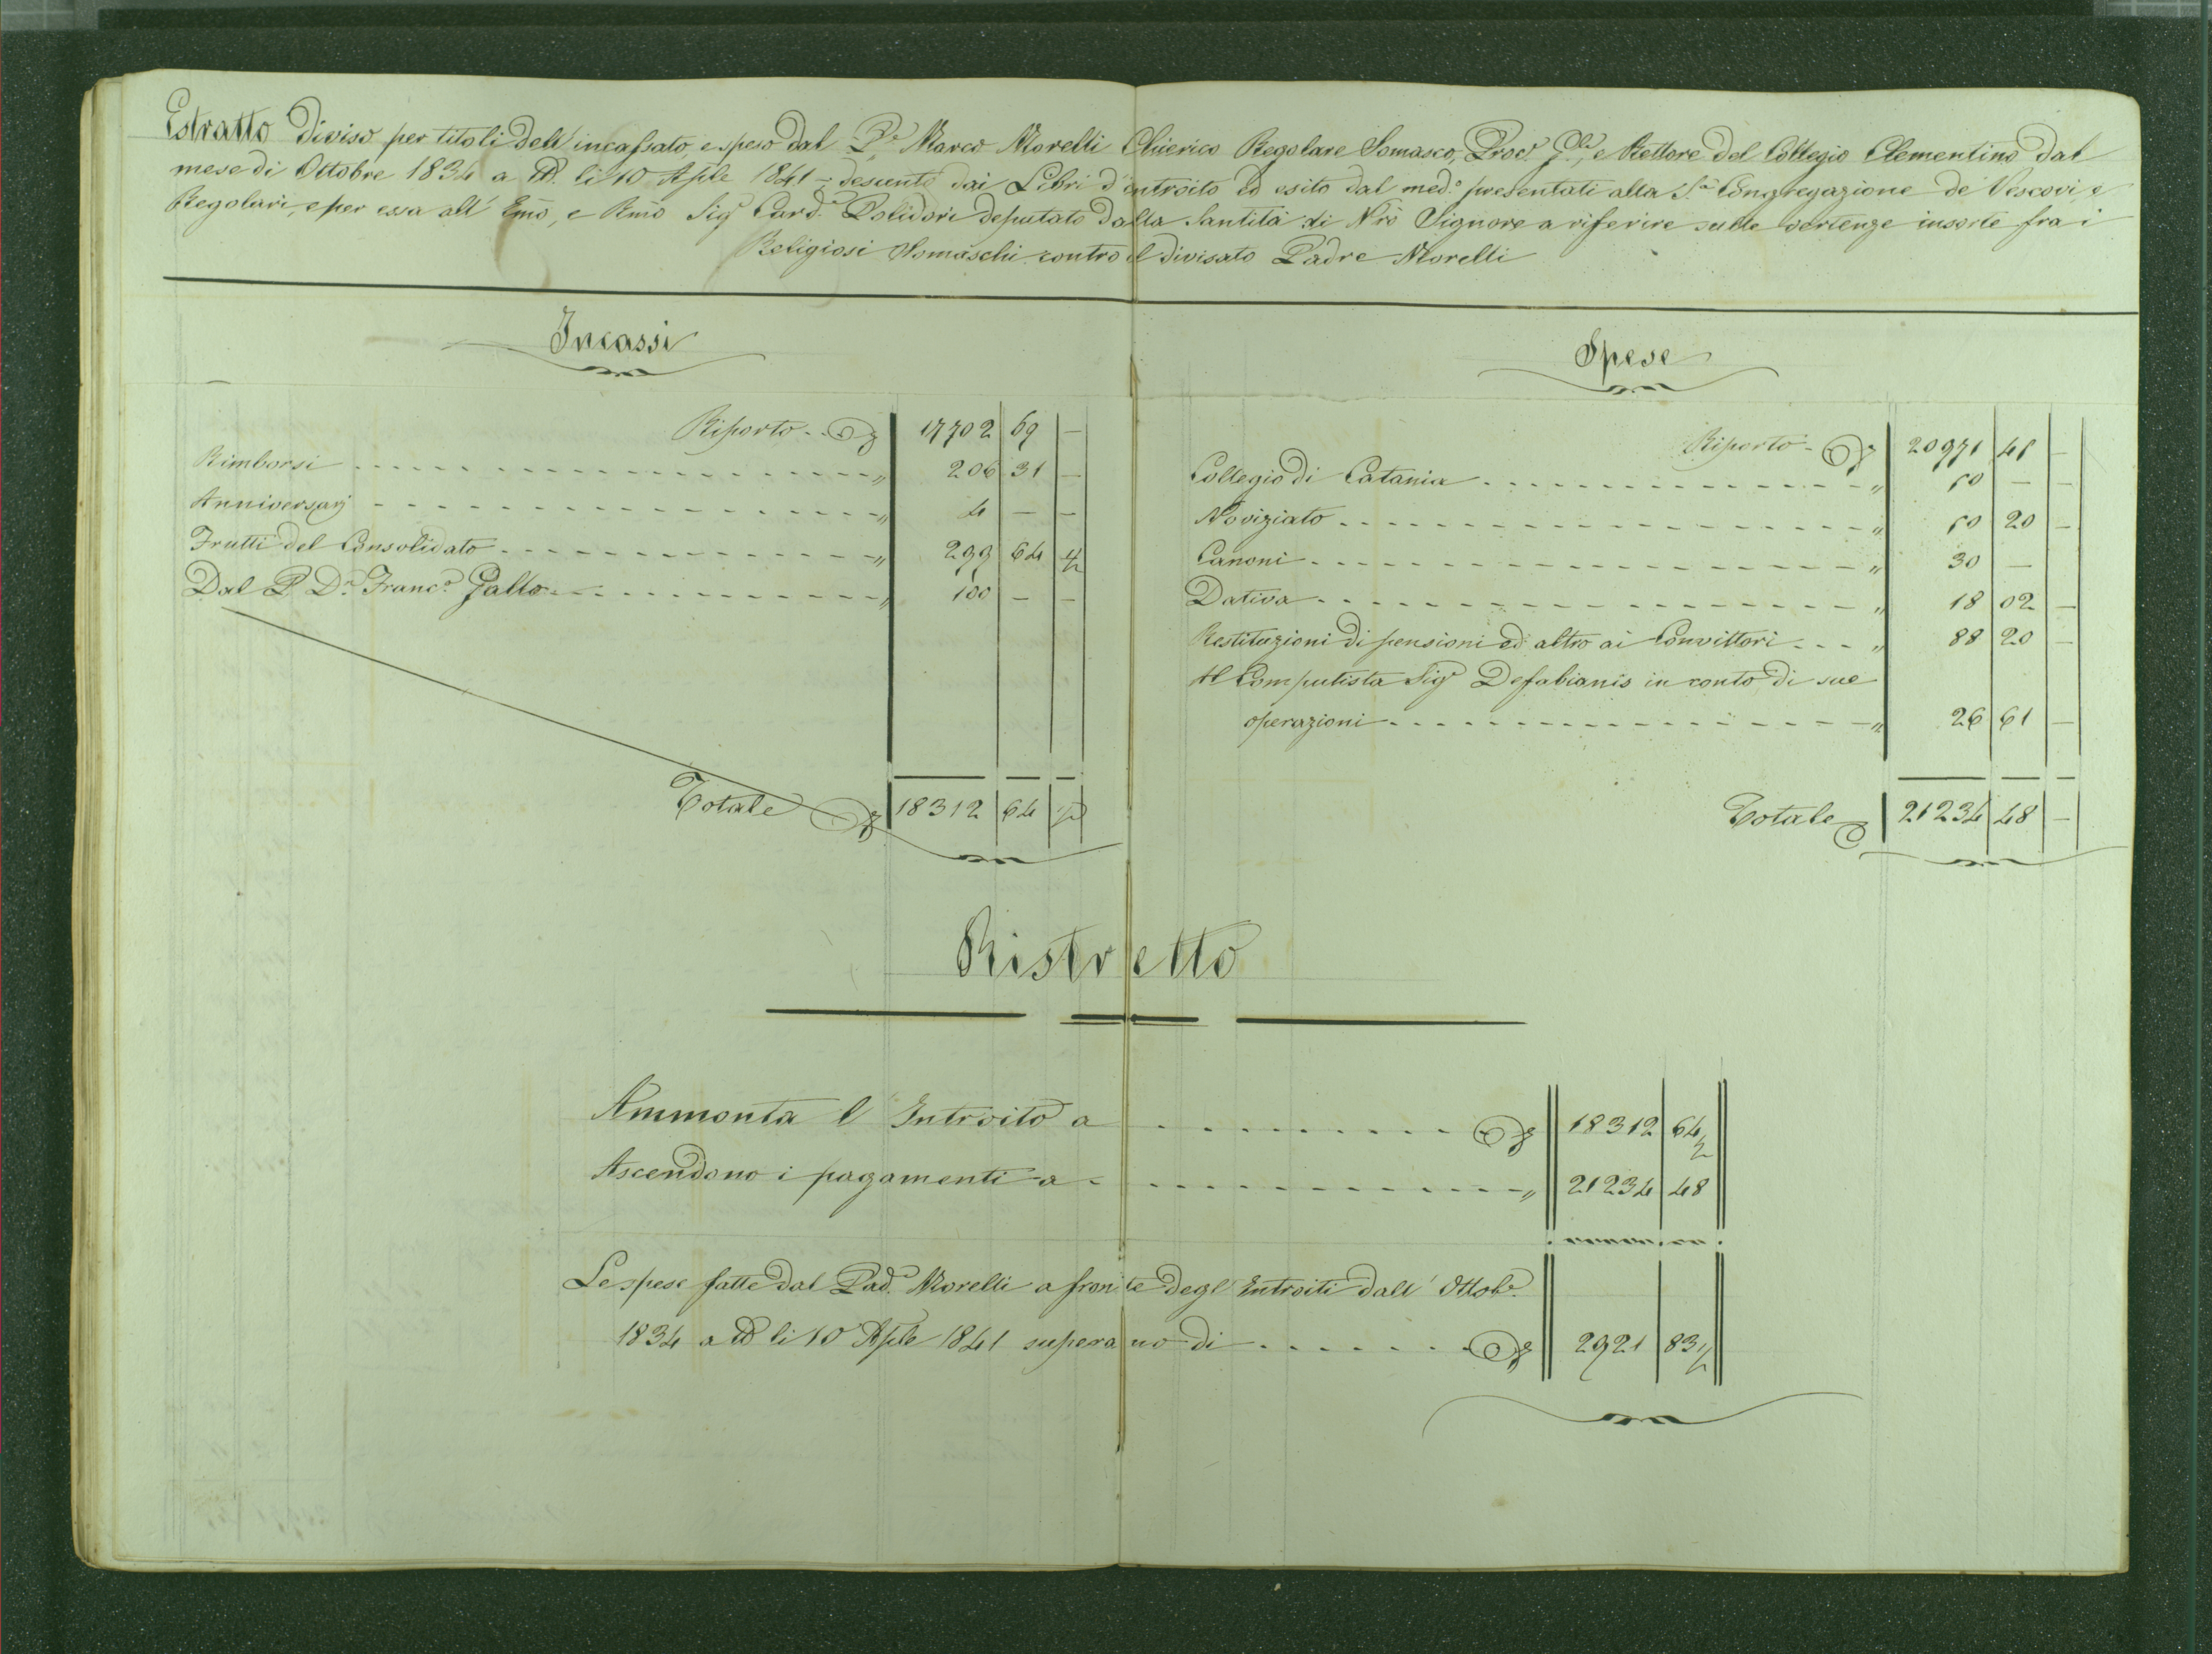 Estratto diviso per titoli dell' incassato, e speso dal P.e Marco Morelli Chierico Regolare Somasco, Proc.r G.le, e Rettore del Collegio Clementino, dal
mese di Ottobre 1834 a tt.o li 10 Aprile 1841 = desunto dai Libri d'introito ed esito dal med.o presentati alla S.a Congregazione de' Vescovi, e
Regolari, e per essa all' Emo, e Rmo Sig.r Card.e Polidori deputato dalla Santità di Nro Signore a riferire sulle vertenze insorte fra i
Religiosi Somaschi contro il divisato Padre Morelli
Incassi
Riporto 17702 69 —
Rimborsi " 206 31 —
Anniversarj " 4 — —
Frutti del Consolidato " 299 64 ½
Dal P. D.n Franc.o Gallo " 100 — —
Totale 18312 64 ½
Spese
Riporto 20971 45 —
Collegio di Catania " 50 — —
Noviziato " 50 20 —
Canoni " 30 —
Dativa " 18 02 —
Restituzioni di pensioni ed altro ai Convittori " 88 20 —
Al Computista Sig.r Defabianis in conto di sue
operazioni " 26 61 —
Totale 21234 48 —
Ristretto
Ammonta l' Introito a 18312 64½
Ascendono i pagamenti a " 21234 48
Le spese fatte dal Pad.e Morelli a fronte degl' Introiti dall' Ottob.e
1834 a tt.o li 10 Aprile 1841 superano di 2921 83½